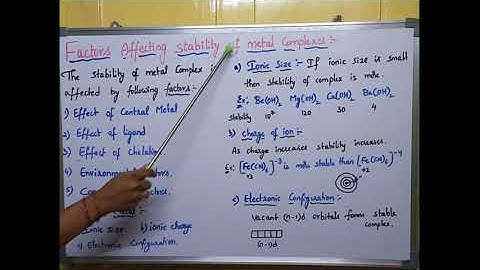 Factors Affecting stability of metal Complexes:-
The stability of metal Complex is
affected by following factors:-
1) Effect of Central Metal
2) Effect of ligand
3) Effect of chelation
4) Environmental factors
5) factors.
Ionic size. b) ionic charge
c) Electronic Configuration.
a) Ionic Size:- If ionic size is small
then stability of complex is more.
Ex:- Be(OH)2 Mg(OH)2 Ca(OH)2 Ba(OH)2
stability 120 30 4
b) charge of ion:-
As charge increases stability increases.
Ex: [Fe(CN)6]-3 is more stable than [Fe(CN)6]-4
+3 +2
c) Electronic Configuration:-
vacant (n-1)d orbitals form stable
complex.
(n-1)d